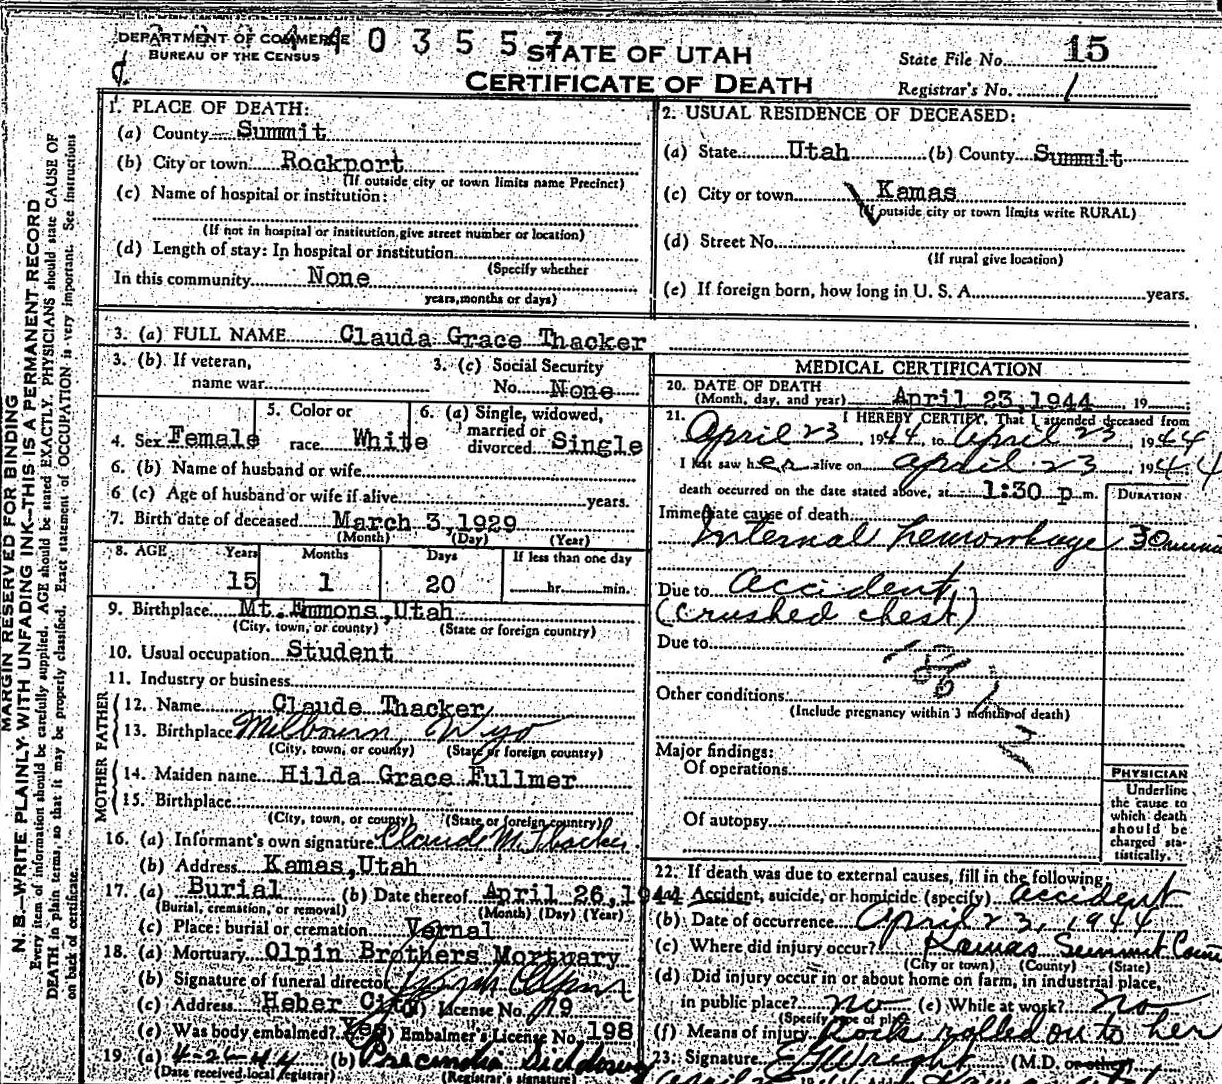 DEPARTMENT OF COMMERCE
BUREAU OF THE CENSUS
4 4 0 3 5 5 7
STATE OF UTAH
CERTIFICATE OF DEATH
State File No. 15
Registrar's No. 1
MARGIN RESERVED FOR BINDING
N. B.—WRITE PLAINLY WITH UNFADING INK—THIS IS A PERMANENT RECORD
Every item of information should be carefully supplied. AGE should be stated EXACTLY. PHYSICIANS should state CAUSE OF
DEATH in plain terms, so that it may be properly classified. Exact statement of OCCUPATION is very important. See instructions
on back of certificate.
1. PLACE OF DEATH:
(a) County Summit
(b) City or town Rockport
(If outside city or town limits name Precinct)
(c) Name of hospital or institution:
(If not in hospital or institution, give street number or location)
(d) Length of stay: In hospital or institution
(Specify whether
In this community None
years, months or days)
2. USUAL RESIDENCE OF DECEASED:
(a) State Utah (b) County Summit
(c) City or town Kamas
(If outside city or town limits write RURAL)
(d) Street No.
(If rural give location)
(e) If foreign born, how long in U. S. A. years.
3. (a) FULL NAME Clauda Grace Thacker
3. (b) If veteran,
name war
3. (c) Social Security
No. None
4. Sex Female
5. Color or
race White
6. (a) Single, widowed,
married or
divorced Single
6. (b) Name of husband or wife
6 (c) Age of husband or wife if alive years.
7. Birth date of deceased March 3, 1929
(Month) (Day) (Year)
8. AGE Years Months Days If less than one day
15 1 20 hr. min.
9. Birthplace Mt. Emmons, Utah
(City, town, or county) (State or foreign country)
10. Usual occupation Student
11. Industry or business
FATHER
12. Name Claude Thacker
13. Birthplace Milbourn, Wyo
(City, town, or county) (State or foreign country)
MOTHER
14. Maiden name Hilda Grace Fullmer
15. Birthplace
(City, town, or county) (State or foreign country)
16. (a) Informant's own signature Claude M. Thacker
(b) Address Kamas, Utah
17. (a) Burial (b) Date thereof April 26, 1944
(Burial, cremation, or removal) (Month) (Day) (Year)
(c) Place: burial or cremation Vernal
18. (a) Mortuary Olpin Brothers Mortuary
(b) Signature of funeral director Olpin
(c) Address Heber City License No. 79
(e) Was body embalmed? Yes Embalmer's License No. 198
19. (a) 4-26-44 (b)
(Date received local registrar) (Registrar's signature)
MEDICAL CERTIFICATION
20. DATE OF DEATH
(Month, day, and year) April 23, 1944 19
21. I HEREBY CERTIFY, That I attended deceased from
April 23, 1944, to April 23, 1944
I last saw her alive on April 23, 1944
death occurred on the date stated above, at 1:30 p m.
DURATION
Immediate cause of death
Internal hemorrhage 30 min
Due to accident,
(crushed chest)
Due to
Other conditions
(Include pregnancy within 3 months of death)
Major findings:
Of operations
Of autopsy
PHYSICIAN
Underline
the cause to
which death
should be
charged sta-
tistically.
22. If death was due to external causes, fill in the following:
Accident, suicide, or homicide (specify) accident
(b) Date of occurrence April 23, 1944
(c) Where did injury occur? Kamas Summit
(City or town) (County) (State)
(d) Did injury occur in or about home on farm, in industrial place,
in public place? no (e) While at work? no
(Specify type of place)
(f) Means of injury Rock rolled on to her
23. Signature (M.D. or other)